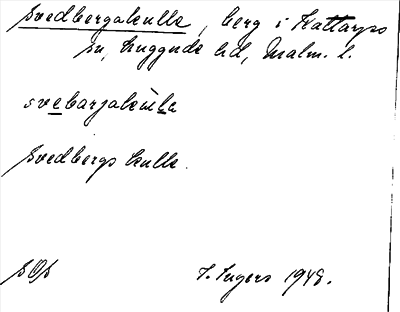 Svedbergakulle, berg i Kattarps
sn, Luggude hd, Malm. l.
svebarjakula
Svedbergs kulle.
SOÅ
I. Ingers 1948.